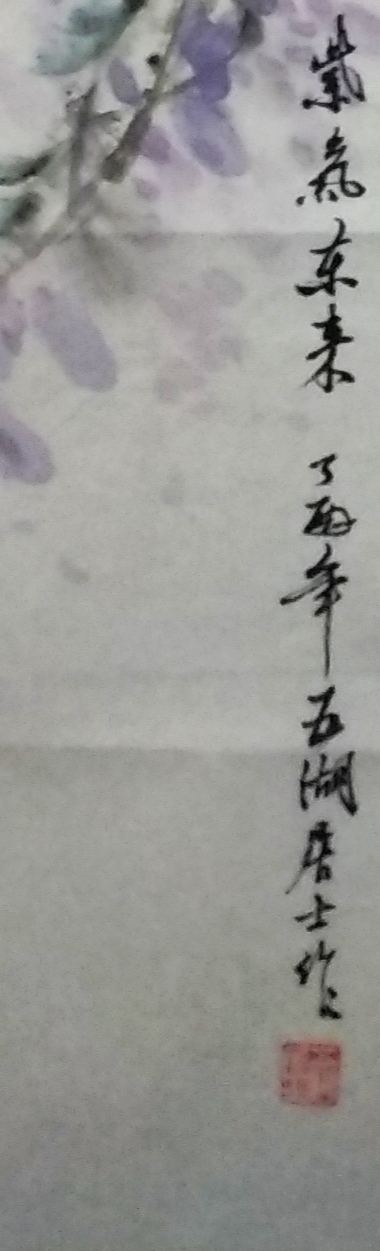 紫氣东来 丁酉年五湖居士作